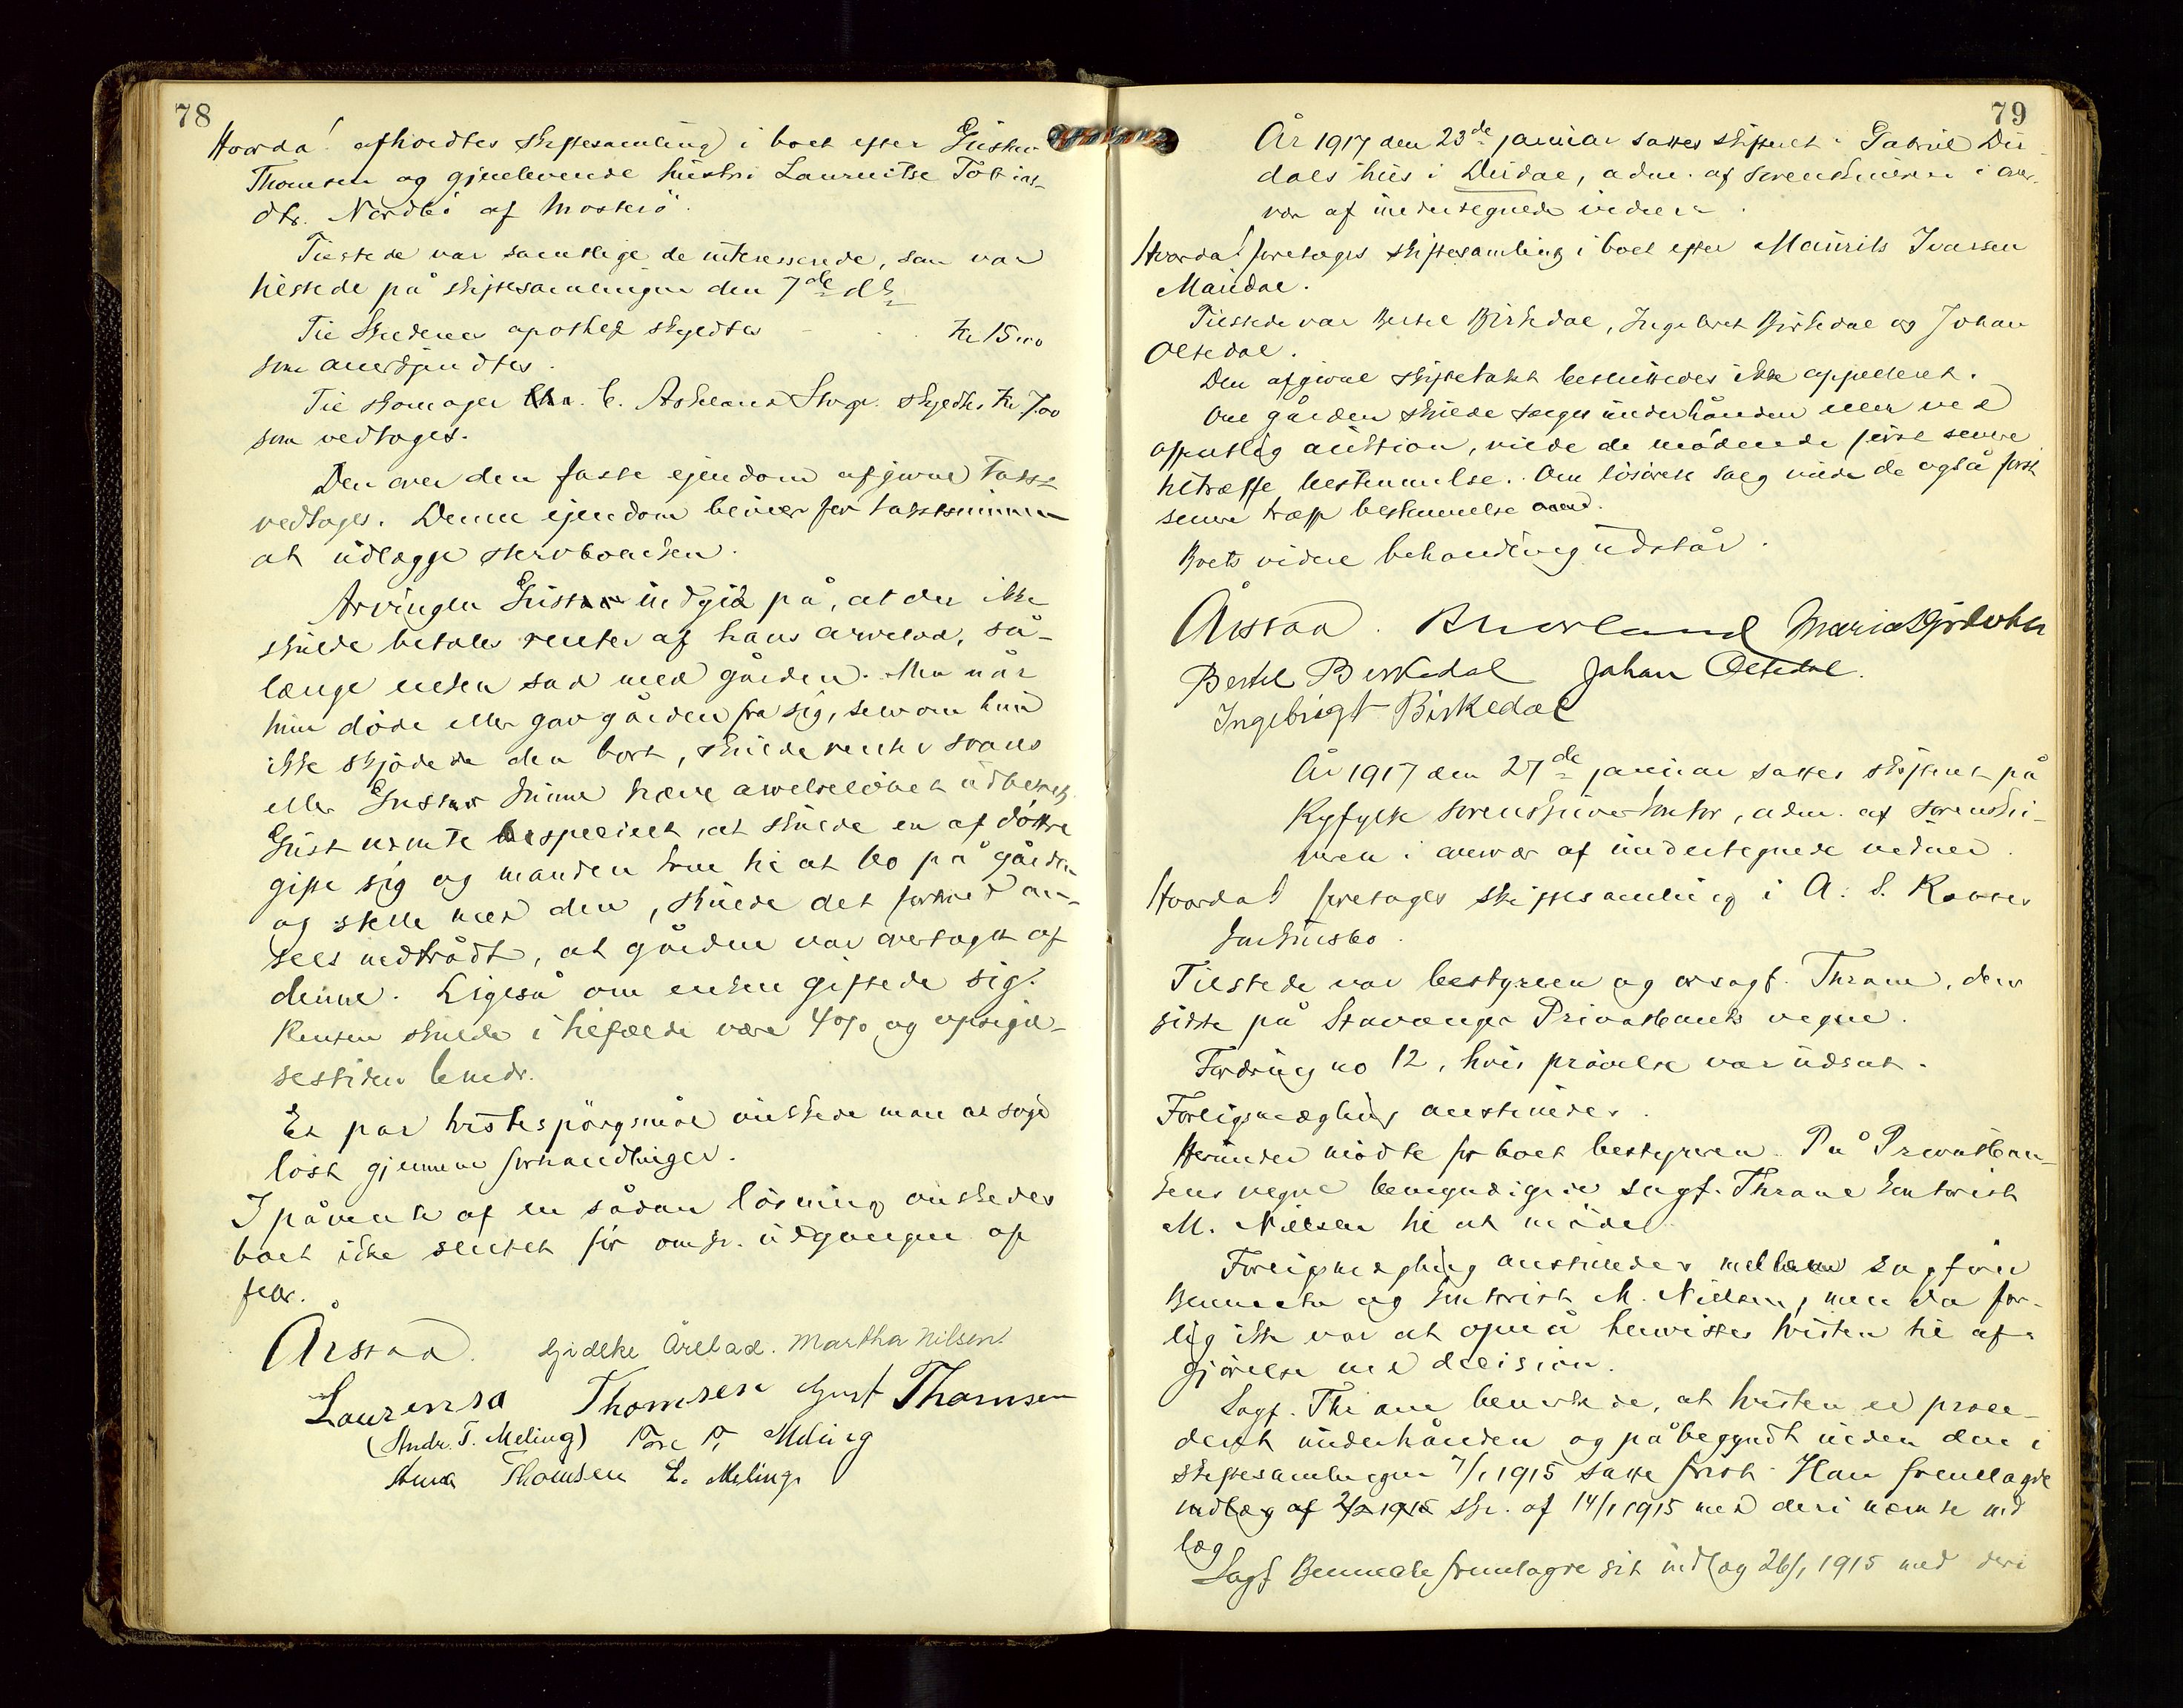 78
Hvorda! afholdtes skiftesamling i boet efter Gustav
Thomsen og gjenlevende hustru Lauruitse Tobias-
dtr. Nordbö af Mosterö.
Tilstede var samtlige de interesserede, som var
tilstede på skiftesamlingen den 7de ds.
Til Skudenes apothek skyldtes kr 15.00
som anerkjendtes.
Til skomager Chr. C. Askeland Stvgr. skyldtes kr 7.00
som vedtoges.
Den over den faste ejendom afgivne takst
vedtoges. Denne ejendom bliver for takstsummen
at udlægge stervboenken.
Arvingen Gustav indgik på, at der ikke
skulde betales renter af hans arvelod, så-
længe enken sad med gården. Men når
hun döde eller gav gården fra sig, selv om hun
ikke skjödede den bort, skulde renter svares
eller Gustav kunne kræve arvelselöbet udbetalt.
Gust nevnte specielt, at skulde en af döttre
gifte sig og manden kom til at bo på gården
og stelle med den, skulde det formed an-
sees nedtrådt, at gården var overtaget af
denne. Ligeså om enken giftede sig.
Renten skulde i tilfælde være 4% og opsigel-
sestiden 6 mdr.
Et par tvistespörgsmål önskede man at söge
löst gjennem forhandlinger.
I påvente af en sådan lösning önskedes
boet ikke sluttet för omkr. udgangen af
febr.
Årstad. Gjidske Årebad. Martha Nilsen.
Laurensa Thomsen Gust Thomsen
(Andr. T. Meling) Tore T. Meling
Anna Thomsen L. Meling.
79
År 1917 den 23de januar sattes skifteret i Gabriel Dir-
dals hus i Dirdal, adm. af sorenskriveren i over-
vær af undertegnede vidner.
Hvorda! foretoges skiftesamling i boet efter Maurits Ivarsen
Maudal.
Tilstede var Bertel Birkedal, Ingebret Birkedal og Johan
Oltedal.
Den afgivne skiftetakst besluttedes ikke appelleret.
Om gården skulde sælges underhånden eller ved
offentlig auktion, vilde de mödende först senere
tiltræffe bestemmelse. Om lösörets salg vilde de også först
senere træffe bestemmelse
Boets videre behandling udstår.
Årstad. Maria
Bertel Birkedal Johan Oltedal.
Ingebrigt Birkedal
År 1917 den 27de januar sattes skifteret på
Ryfylke sorenskriverkontor, adm. af sorenskri-
veren i overvær af undertegnede vidner.
Hvorda! foretoges skiftesamling i A. S. Kovses
konkursbo.
Tilstede var bestyreren og orsagf. Thrane, den
sidste på Stavanger Privatbanks vegne.
Fordring no 12, hvis prövelse var udsat.
Forligsmægling anstilledes.
Herunder mödte for boet bestyreren. På Privatban-
kens vegne bemyndigede sagf. Thrane kontorist
M. Nielsen til at möde.
Forligsmægling anstilledes mellem sagförer
Bennetche og kontorist M. Nielsen, men da for-
lig ikke var at opnå henvistes tvisten til af-
gjörelse ved decision.
Sagf. Thrane bemerkede, at tvisten er proce-
deret underhånden og påbegyndt inden den i
skiftesamlingen 7/1 1915 satte frist. Han fremlagde
indlæg af 2/2 1915 skr. af 14/1 1915 med deri nevnte ind
læg
Sagf Bennetche fremlagde sit indlæg 26/1 1915 med deri